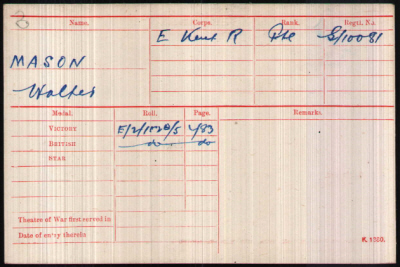 Name. Corps. Rank. Regtl. No.
E Kent R Pte G/10081
MASON
Walter
Medal. Roll. Page. Remarks.
VICTORY E/2/102B/5 483
BRITISH do do
STAR
Theatre of War first served in
Date of entry therein
K. 1380.